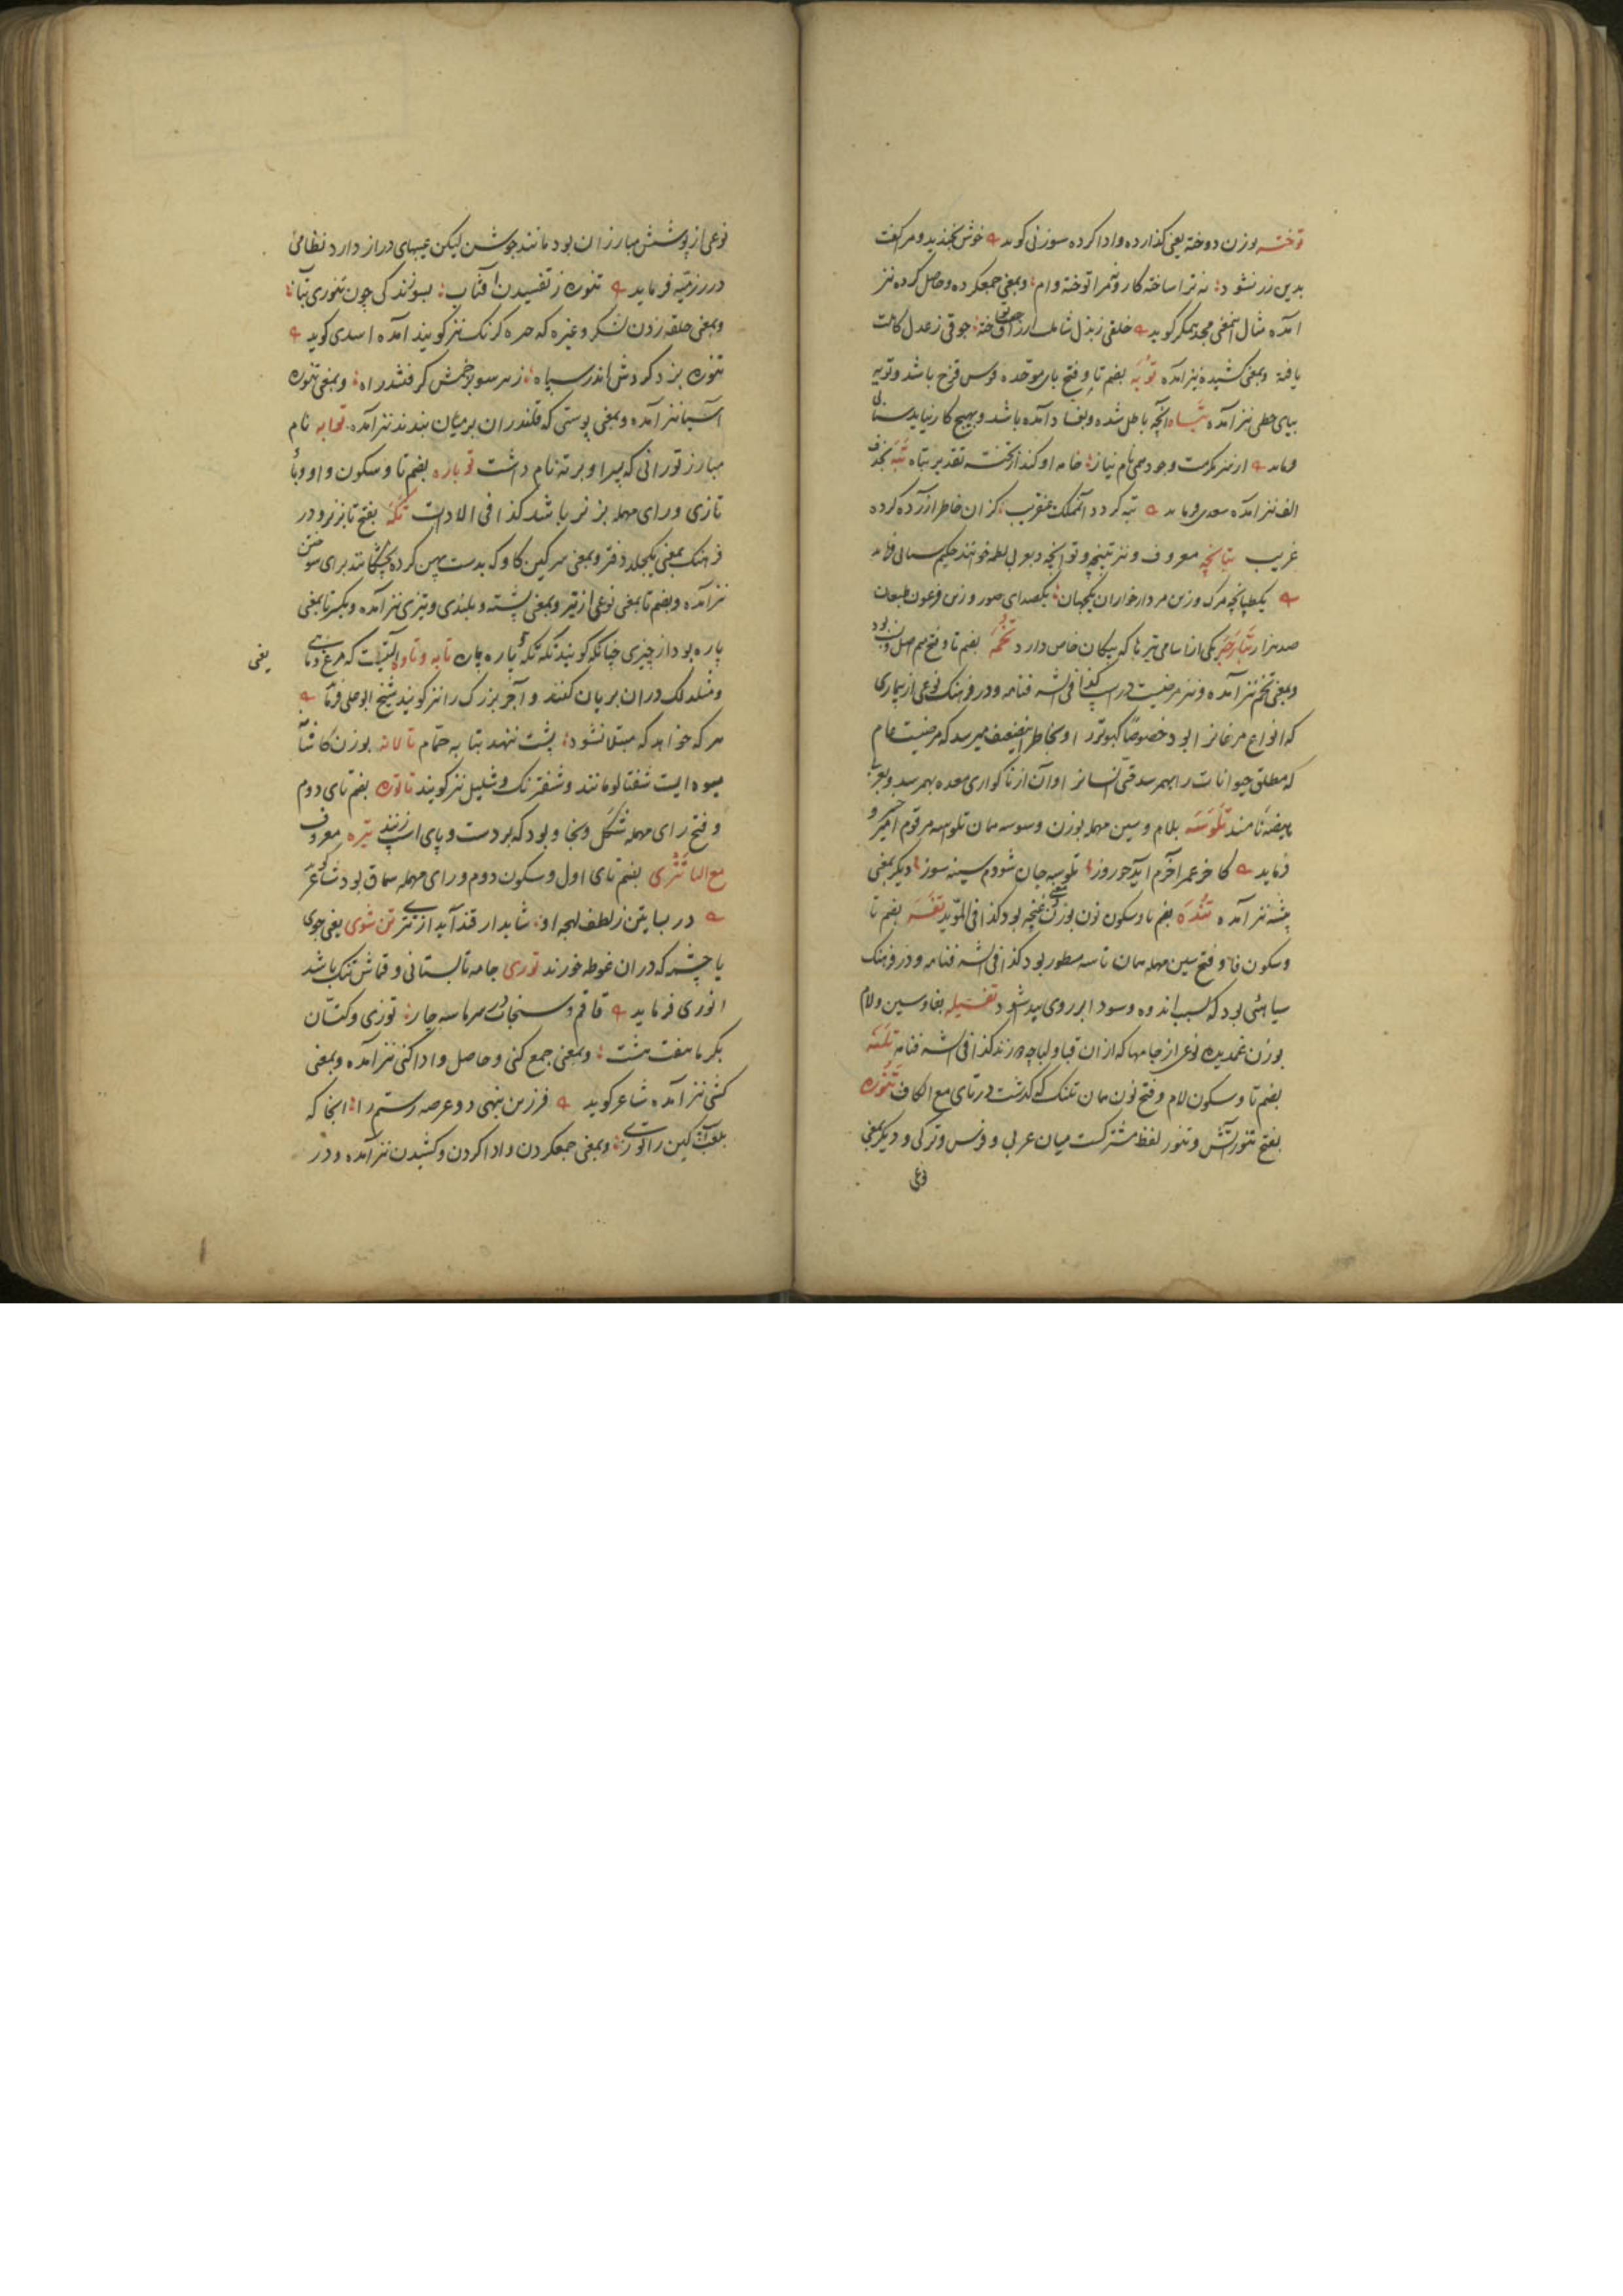 توخته بوزن دوخته یعنی گذارده و ادا کرده سوزنی کوید خوش بخندید و مرا گفت
بدین زر نشود نه ترا ساخته کار و نه مرا توخته وام وبمعنی جمعکرده و حاصل کرده نیز
آمده مثال اینمعنی مجد همگر کوید خلقی ز بذل شاملت ارزاق توخته جوقی ز عدل کاملت
یافته وبمعنی کشیده نیز آمده توبه بضم تا و فتح بای موحده قوس قزح باشد و تویه
بیای حطی نیز آمده تباه آنچه باطل شده و بفساد آمده باشد و بهیچ کار نیاید سنائی
فرماید از هنر مکرمت وجود همی نام نیاز خامه او کند از تخته تقدیر تباه تبه بحذف
الف نیز آمده سعدی فرماید تبه کردد آنمملکت عنقریب کزان خاطر آزرده کرده
غریب تپانچه معروف و نیز تپنچه و توانچه و بعربی لطمه خوانند حکیم سنائی فرماید
یکطپانچه مرک وزین مردارخواران یکجهان یکصدای صور وزین فرعون طبعان
صد هزار یکی از اسامی تیرها که پیکان خاص دارد تخمه بضم تا و فتح میم اصل و نسب بود
وبمعنی تخم نیز آمده و نیز مرضیست در اسپ کذا فی الشرفنامه و در فرهنک نوعی از بیماری
که انواع مرغانرا بود خصوصا کبوتر را و بخاطر اینضعیف میرسد که مرضیست عام
که مطلق حیوانات را بهمرسد حتی انسانرا و آن از ناکواری معده بهمرسد و بعربی
هیضه نامند تلوسه بلام و سین مهمله بوزن وسوسه همان تلواسه مرقوم امیر خسرو
فرماید کاخر عمر آخرم آید چو روز تلوسه جان شودم سینه سوز و دیگر بمعنی
پشه نیز آمده تنده بضم تا و سکون نون بوزن غنچه بود کذا فی المؤید تفسه بضم تا
و سکون فا و فتح سین مهمله همان تاسه مسطور بود کذا فی الشرفنامه و در فرهنک
سیاهئی بود که بسبب اندوه و سودا بر روی پیدا شود تفسیله بفا و سین و لام
بوزن غمدیده نوعی از جامها که از ان قبا و لباچه دوزند کذا فی الشرفنامه تلنه
بضم تا و سکون لام و فتح نون همان تلنک که گذشت در تای مع الکاف تنوره
بفتح تنور آتش و تنور لفظ مشترکست میان عربی و فرس و ترکی و دیگر بمعنی
نوعی
نوعی از پوشش مبارزان بود مانند جوشن لیکن عیبهای دراز دارد نظامی
در رزمیه فرماید تنوره ز تفسیدن آفتاب بسوزندکی چون تنوری بتاب
وبمعنی حلقه زدن لشکر و غیره که جرکه و کرنک نیز کویند آمده اسدی کوید
تنوره بزد کردش اندر سپاه ز هر سو بزخمش گرفتند راه وبمعنی تنوره
آسیا نیز آمده وبمعنی پوستی که قلندران بر میان بندند نیز آمده نام
مبارز تورانی که پسر او برته نام داشت توباره بضم تا و سکون واو و با
تازی و رای مهمله بز نر باشد کذا فی الادات تکه بفتح تا بز نر و در
فرهنک بمعنی یکجلد دفتر وبمعنی سرکین کاو که بدست پهن کرده بخشکانند برای سوختن
نیز آمده وبضم تا بمعنی نوعی از تیر وبمعنی پشته و بلندی و تیزی نیز آمده وبکسر تا بمعنی
پاره بود از چیزی چنانکه کویند تکه تکه و پاره پاره تابه و تاوه آلتیست که مرغ و ماهی
و مثلذلک در ان بریان کنند و آجر بزرک را نیز کویند شیخ ابوعلی فرماید
هر که خواهد که مبتلا نشود پشت ننهد بتابه حمام تالانه بوزن کاشانه
میوه ایست شفتالو مانند و شفترنک و شلیل نیز کویند تاتوره بضم تای دوم
و فتح رای مهمله شکل و بخاو بود که بر دست و پای اسپ زنند تیره معروف
مع الیا تتری بضم تای اول و سکون دوم و رای مهمله سماق بود شاعر گوید
در بیابتن ز لطف لهجه او شاید ار قند آید از تتری تن شوی یعنی جوی
یا چشمه که در ان غوطه خورند توزی جامه تابستانی و قماش تنک باشد
انوری فرماید قاقم و سنجاب در سرما سه چار توزی و کتان
بکرما هفت هشت وبمعنی جمع کنی و حاصل و ادا کنی نیز آمده وبمعنی
کشی نیز آمده شاعر کوید فرزین بنهی دو عرصه رستم را آنجا که
بلعب کین را توزی وبمعنی جمعکردن و ادا کردن و کشیدن نیز آمده و در
یعنی